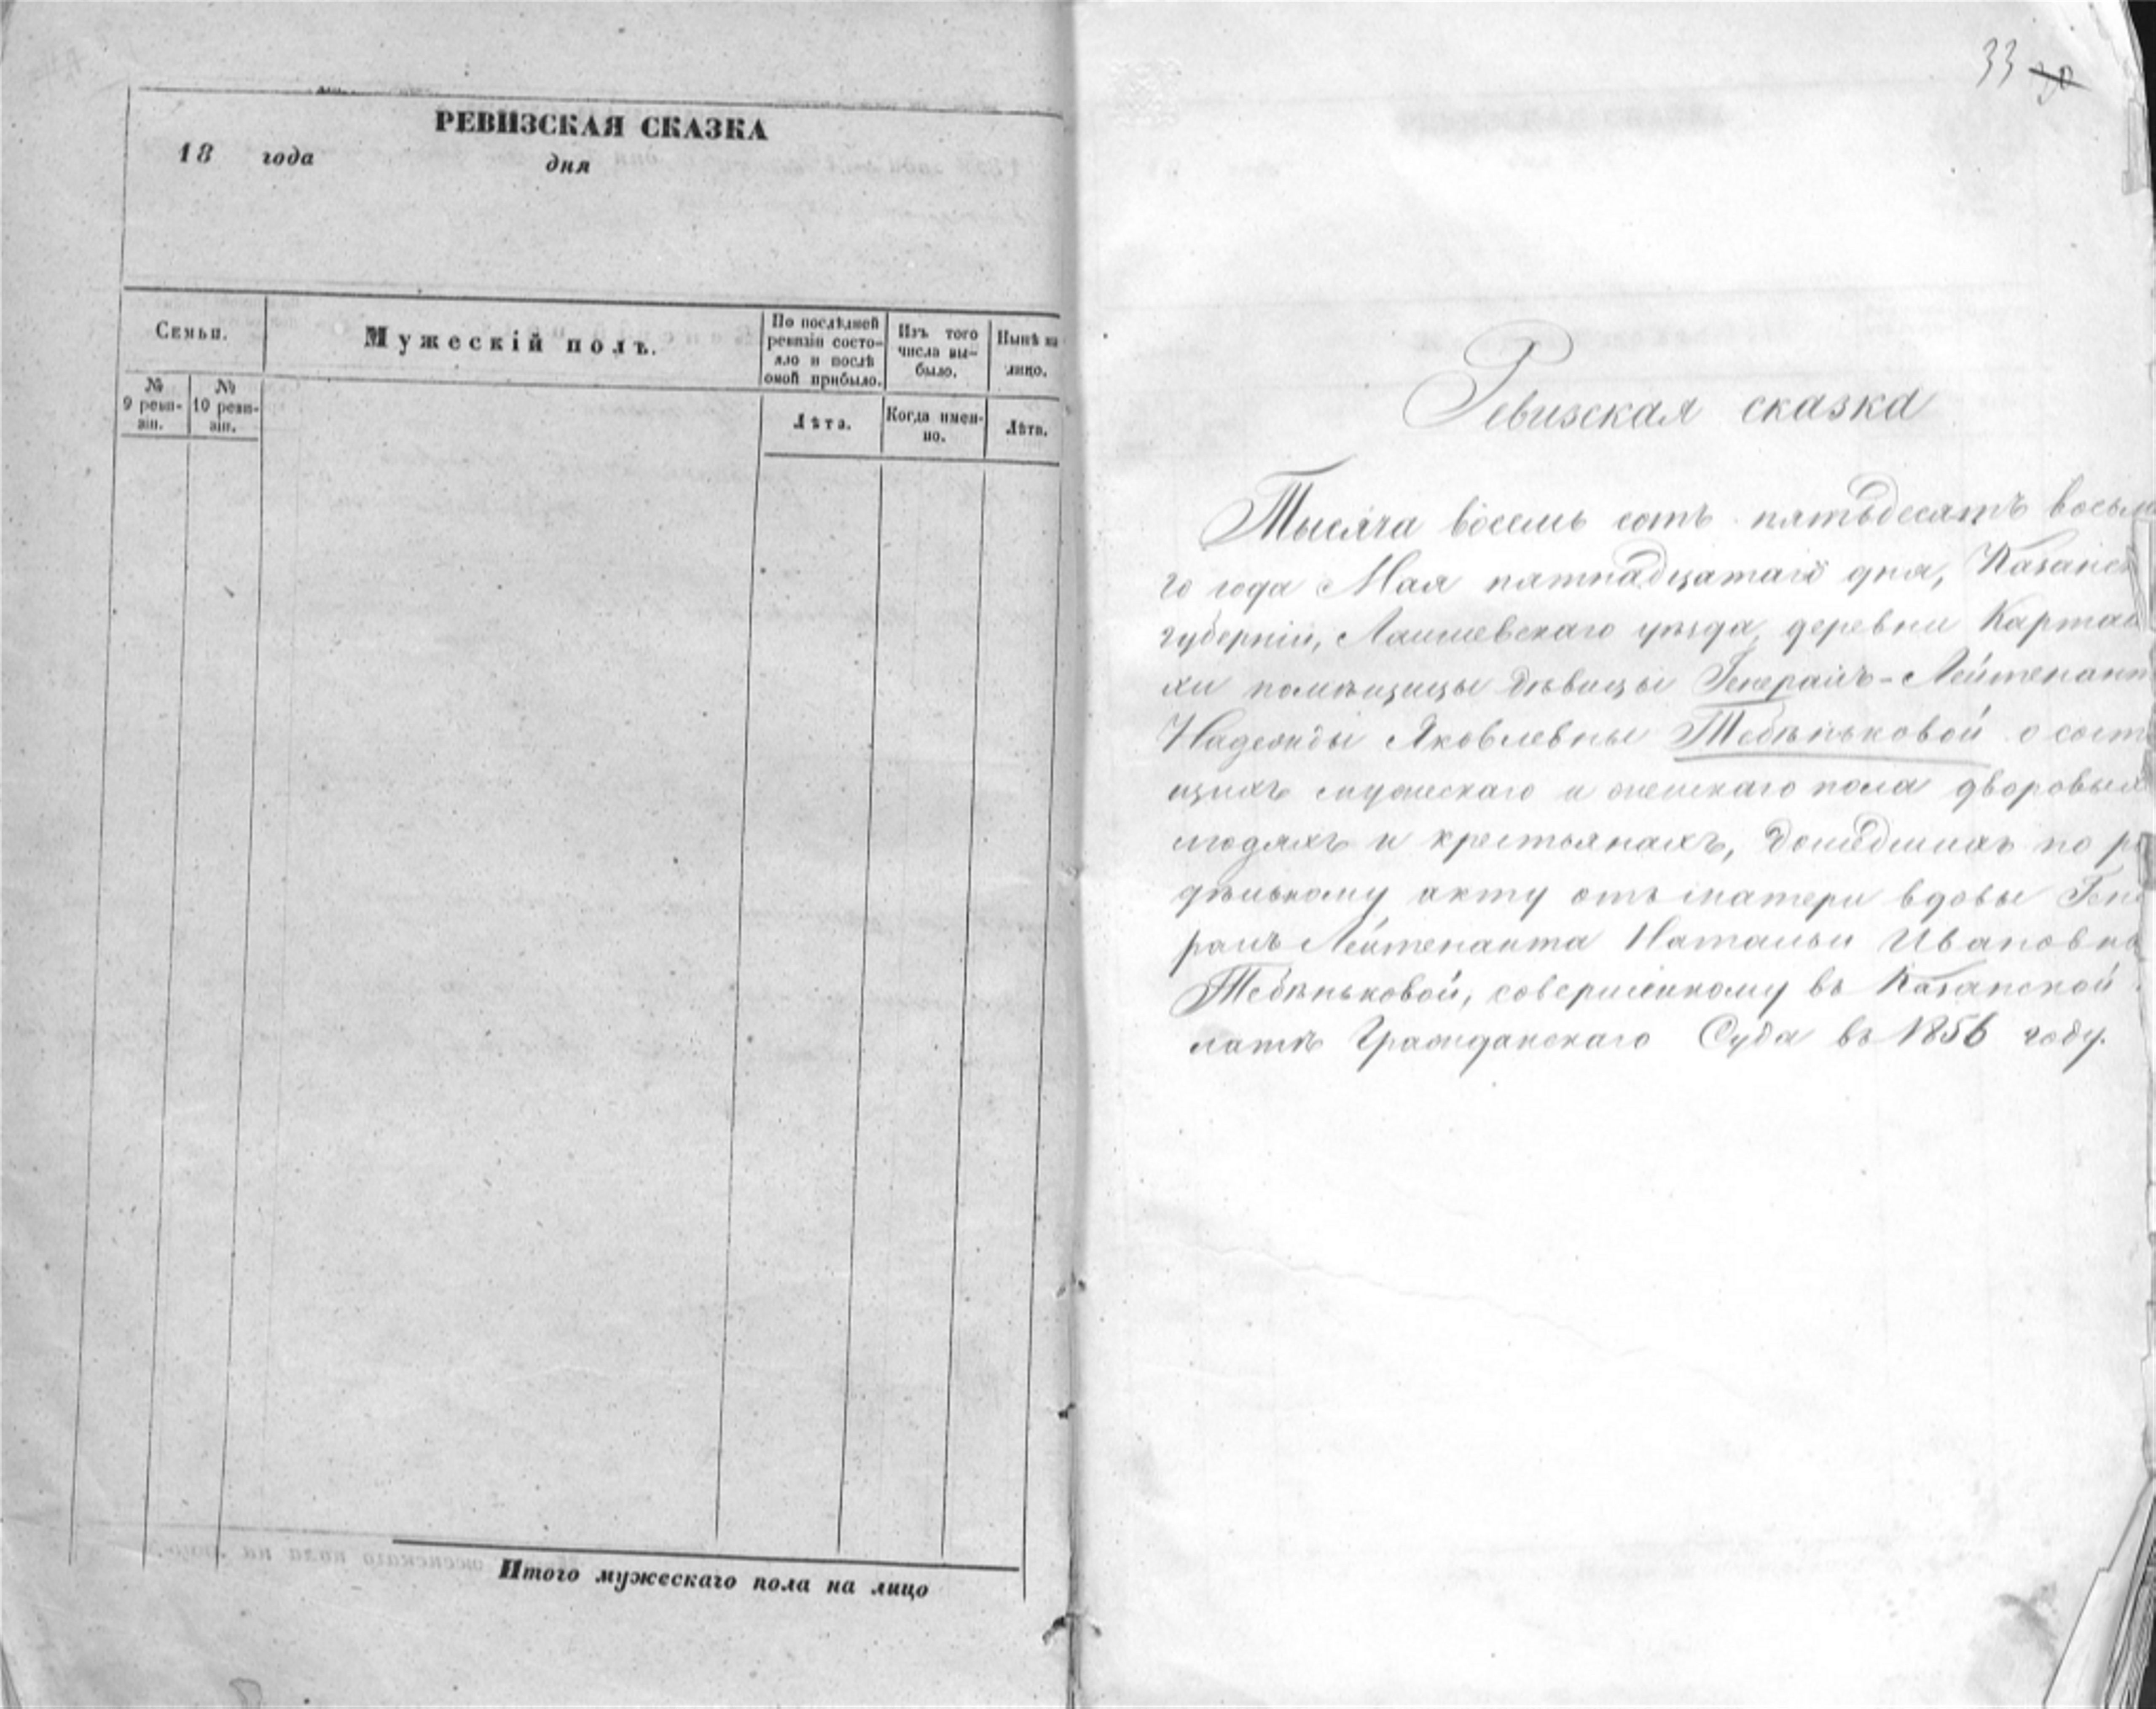 РЕВИЗСКАЯ СКАЗКА
18 года дня
Семьи.
Мужескій полъ.
По послѣдней ревизіи состояло и послѣ оной прибыло.
Изъ того числа выбыло.
Нынѣ на лицо.
№ 9 ревизіи.
№ 10 ревизіи.
Лѣта.
Когда именно.
Лѣта.
Итого мужескаго пола на лицо
33 30
Ревизская сказка
Тысяча восемь сотъ пятьдесятъ восьма
го года Мая пятнадцатаго дня, Казанск
губерніи, Лаишевскаго уѣзда, деревни Карташ
хи помѣщицы дѣвицы Генералъ-Лейтенант
Надежды Яковлевны Тебѣньковой о сост
щихъ мужескаго и женскаго пола дворовых
людяхъ и крестьянахъ, дошедшихъ по ра
дѣльному акту отъ матери вдовы Гене
ралъ Лейтенанта Натальи Ивановны
Тебѣньковой, совершенному въ Казанской
латѣ Гражданскаго Суда въ 1856 году.